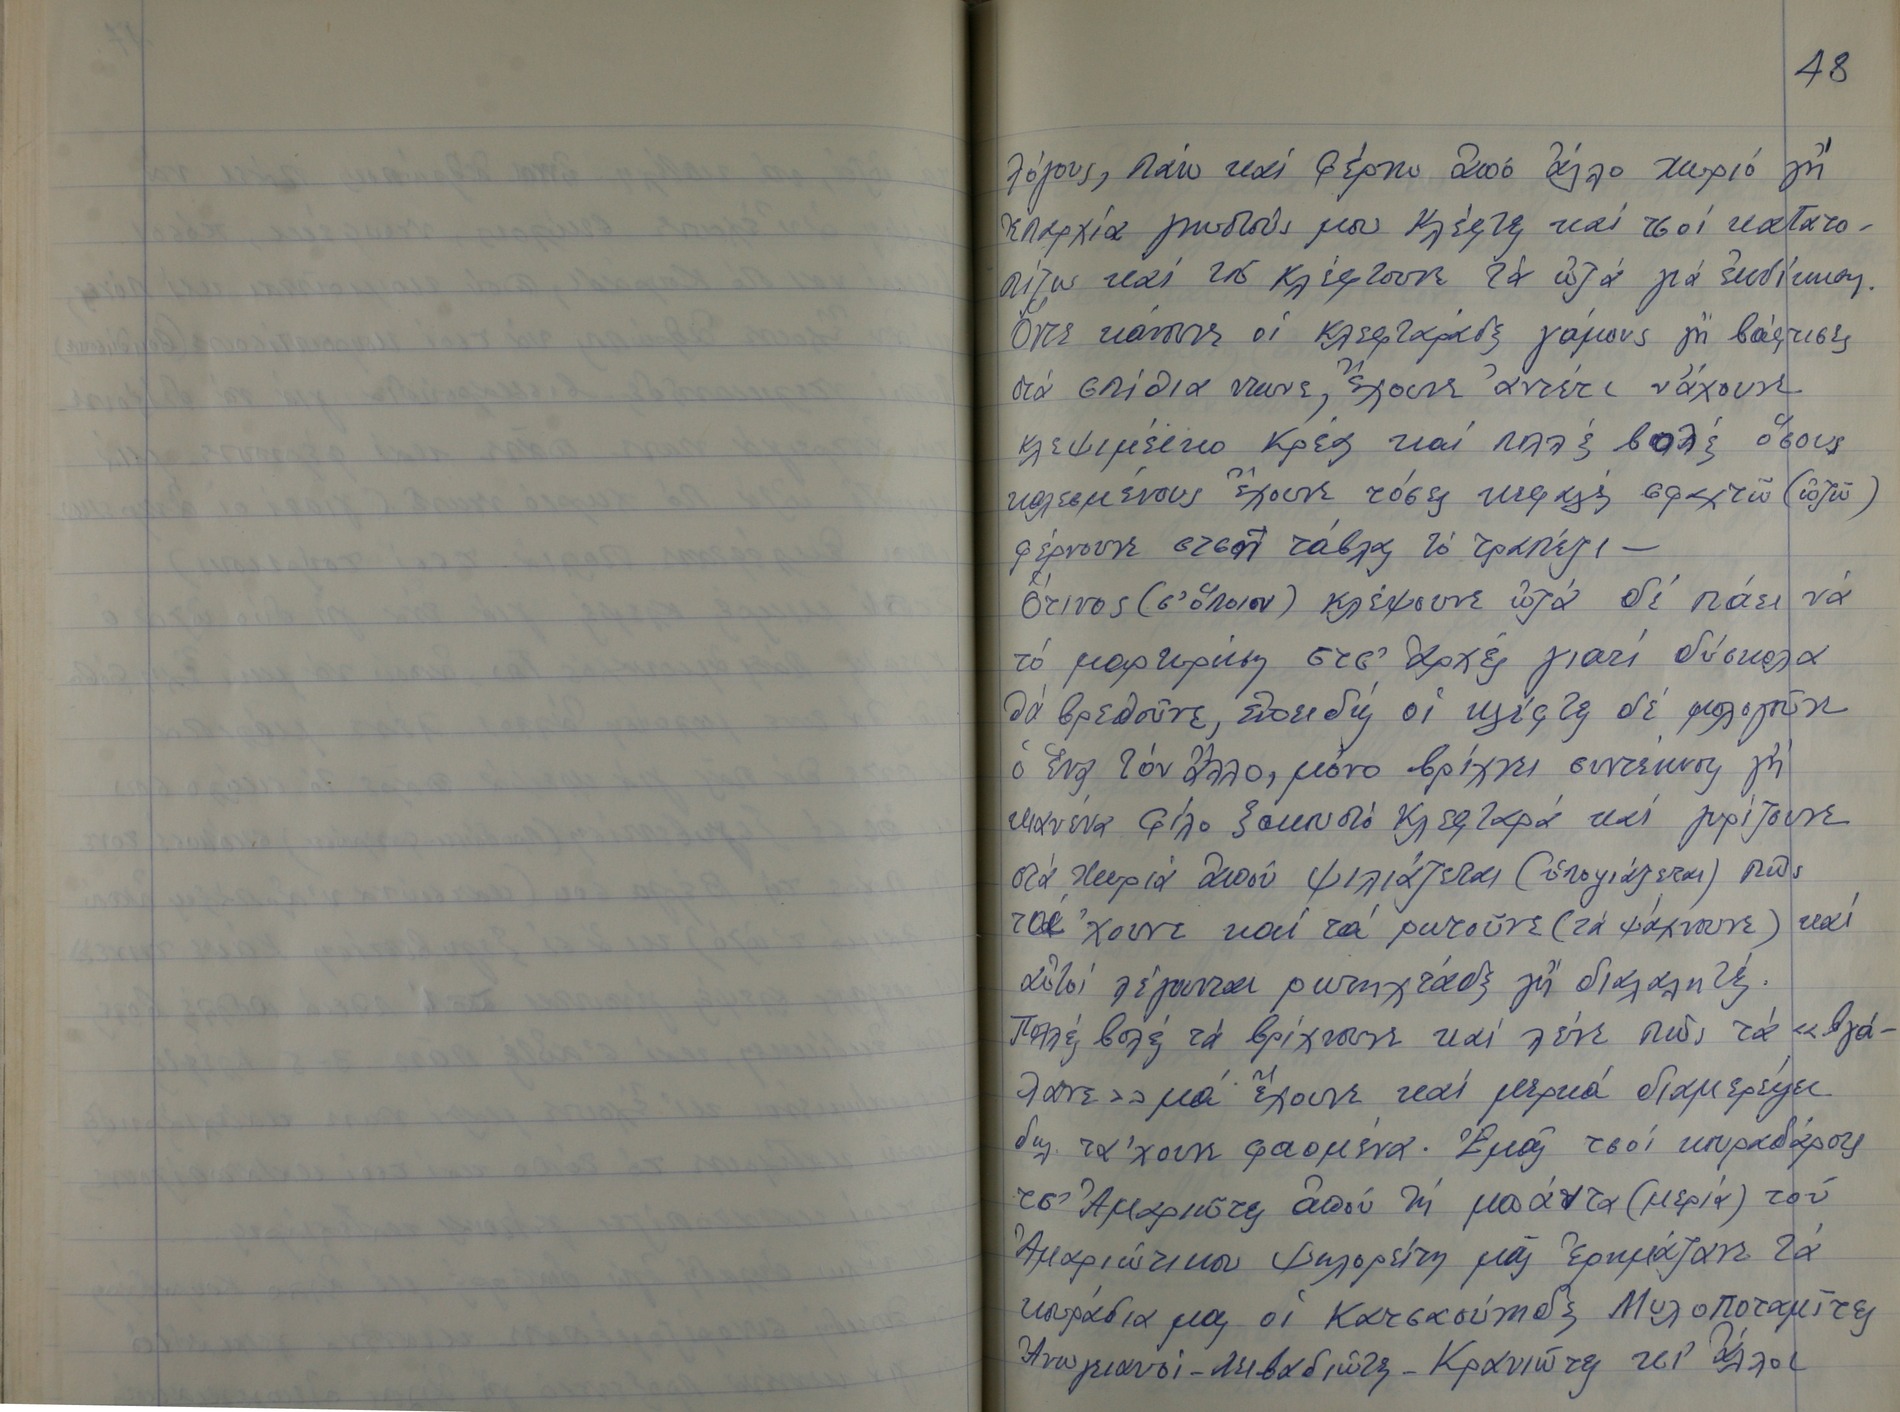 48
λόγους, πάω καί φέρνω ἀπό ἄλλο χωριό γἤ
ἐπαρχία γνωστούς μου κλέφτες καί τσοί κατατο-
πίζω καί τοῦ κλέφτουνε τά ὠζά γιά ἐκδίκηση.
Ὅντε κάνουνε οἱ κλεφταράδες γάμους γἤ βάφτισες
στά σπίθια ντωνε, ἔχουνε ἀντέτι νἄχουνε
κλεψιμέικο κρέας καί πολλές βολές ὅσους
καλεσμένους ἔχουνε τόσες κεφαλές σφαχτῶ (ὠζῶ)
φέρνουνε στσῆ τάβλας τό τραπέζι —
Ὅτινος (σ' ὅποιον) κλέψουνε ὠζά δέ πάει νά
τό μαρτυρήση στσ' ἀρχές γιατί δύσκολα
θά βρεθοῦνε, ἐπειδής οἱ κλέφτες δέ μολογοῦνε
ὁ ἕνας τόν ἄλλο, μόνο βρίχνει συντέκνους γἤ
κιανένα φίλο ξακουστό κλεφταρά καί γυρίζουνε
στά χωριά ἀπού ψιλιάζεται (ὑποψιάζεται) πῶς
τά 'χουνε καί τά ρωτοῦνε (τά ψάχνουνε) καί
αὐτοί λέγονται ρωτηχτάδες γἤ διαλαλητές.
Πολλές βολές τά βρίχνουνε καί λένε πῶς τά «βγά-
λανε» μά ἔχουνε καί μερκά διαμερέψει
δηλ. τά 'χουνε φαομένα. Ἐμᾶς τσοί κουραδάρους
τσ' Ἀμαριῶτες ἀπού τή μπάντα (μεριά) τοῦ
Ἀμαριώτικου Ψηλορείτη μᾶς ἐρημάζανε τά
κουράδια μας οἱ Κατσακούληδες Μυλοποταμῖτες
Ἀνωγειανοί - Λειβαδιῶτες - Κρανιῶτες κι' ἄλλοι